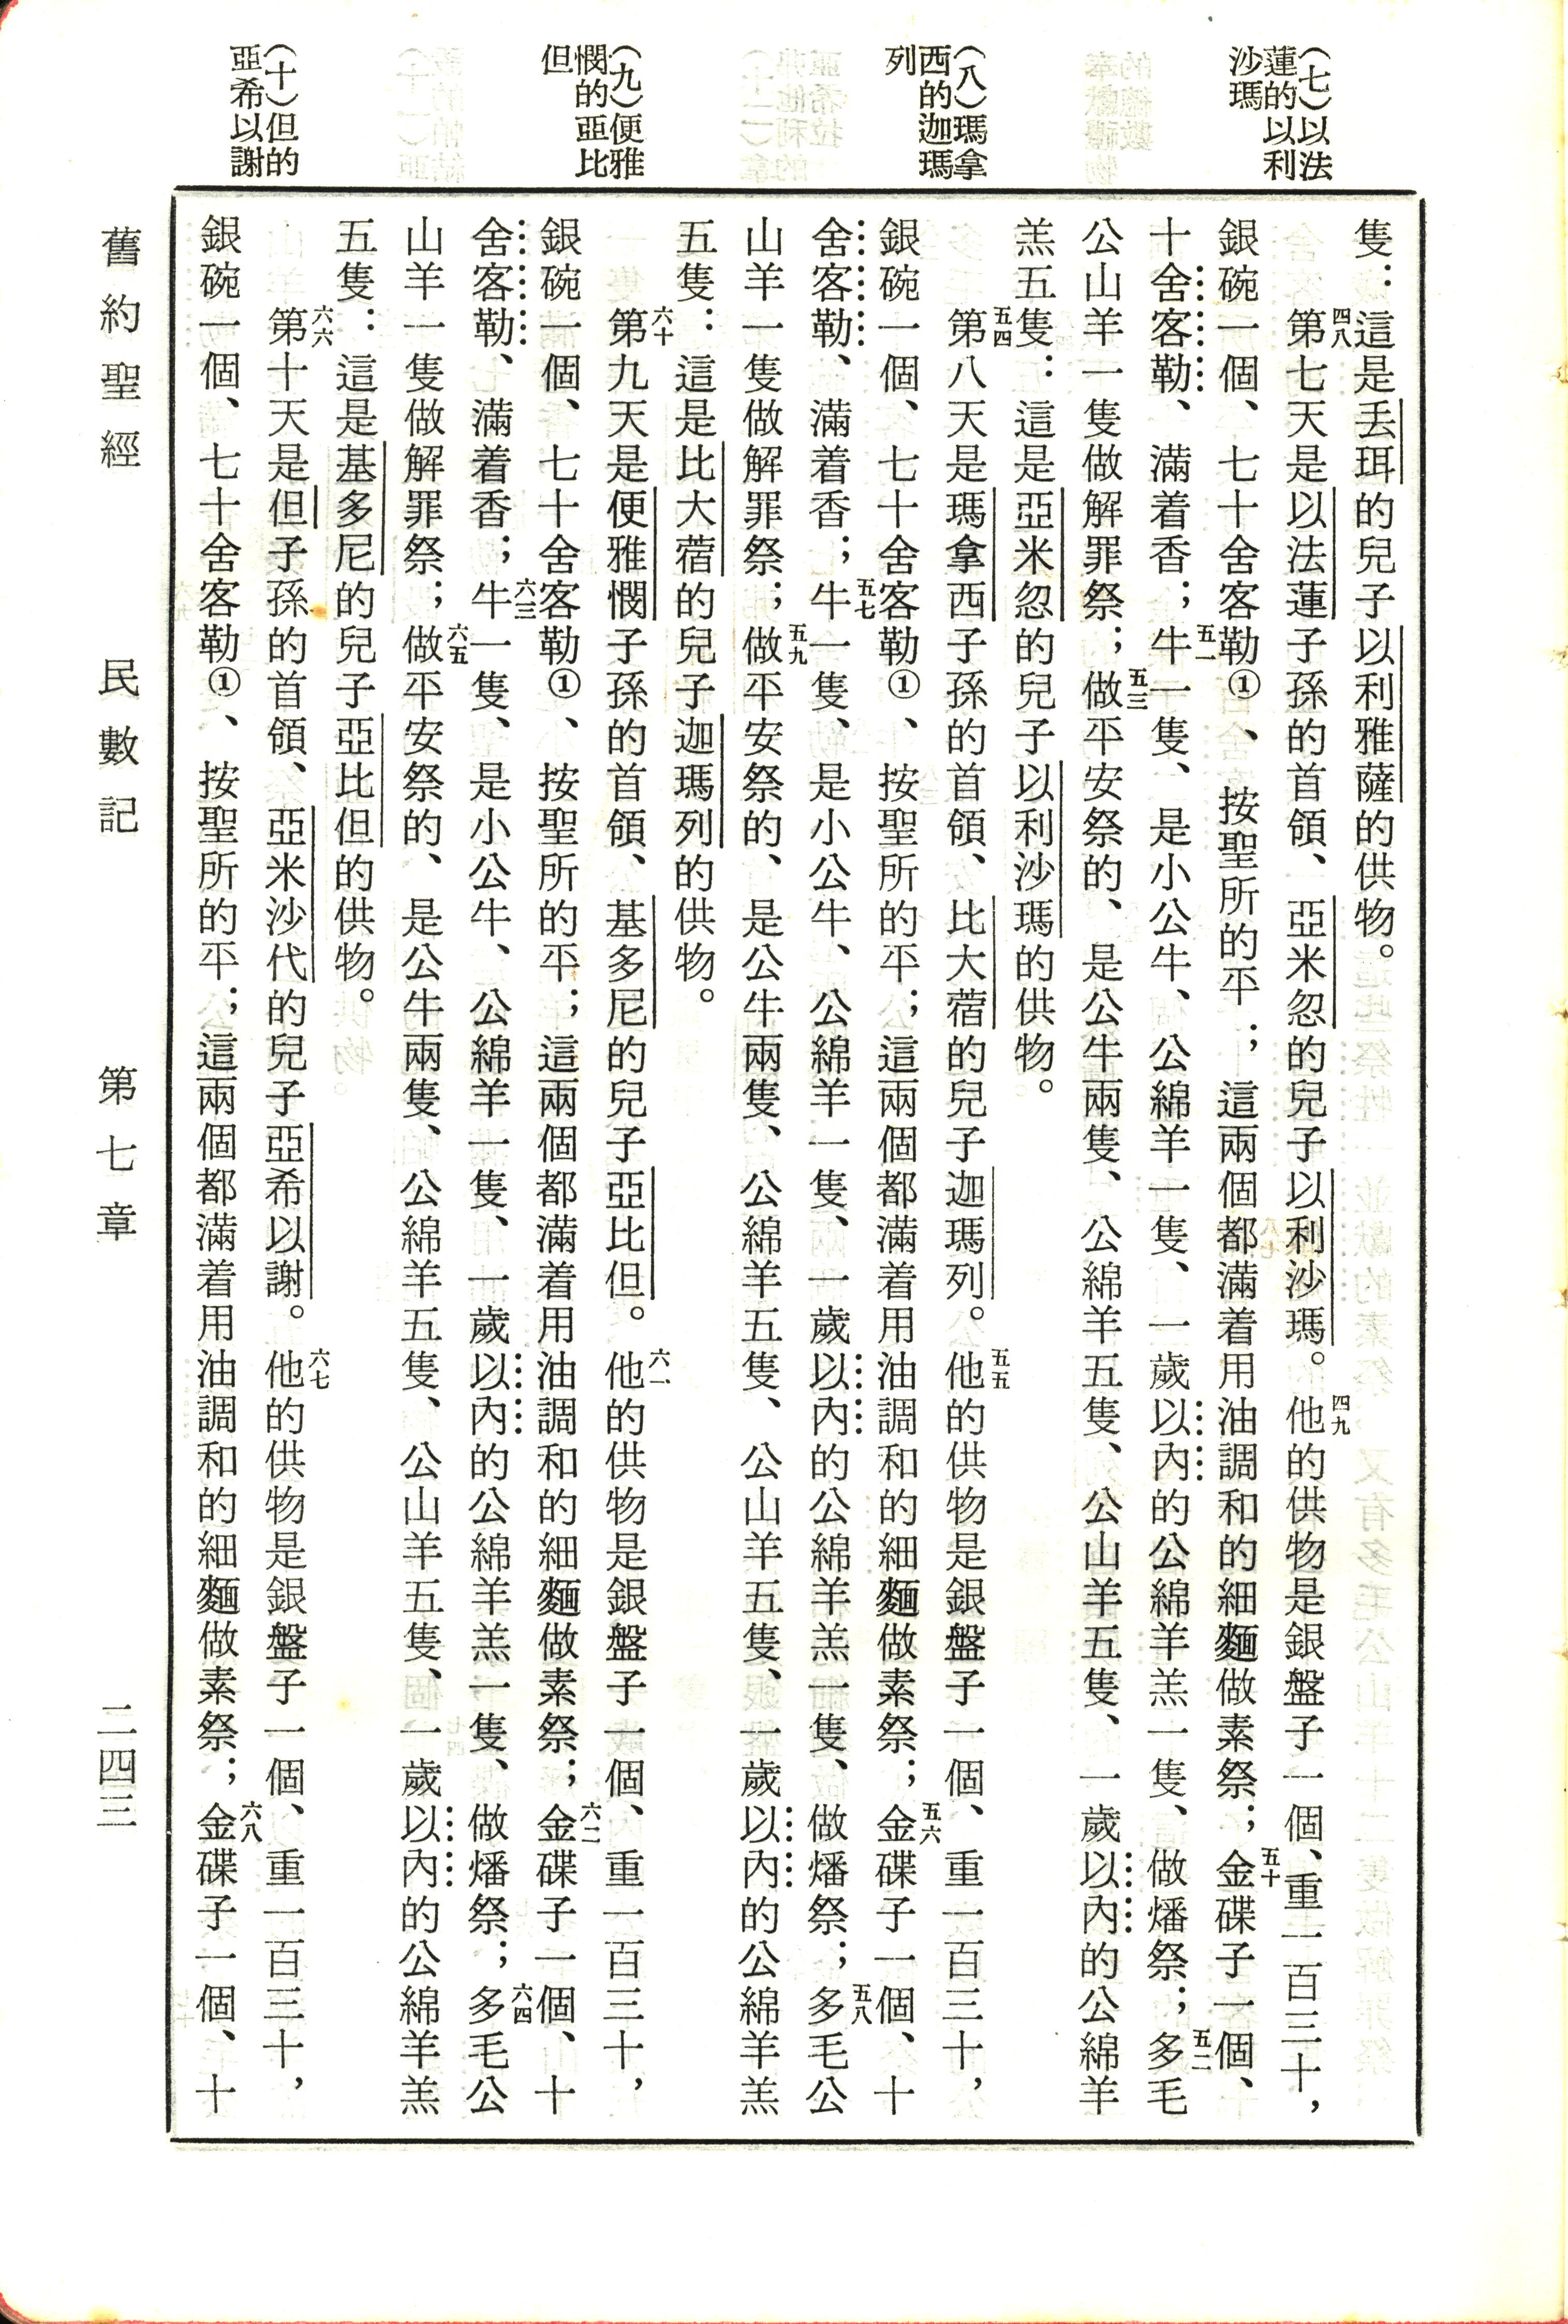 (七)以法
蓮的以利
沙瑪
(八)瑪拿
西的迦瑪
列
(九)便雅
憫的亞比
但
(十)但的
亞希以謝
隻：這是丢珥的兒子以利雅薩的供物。
四八第七天是以法蓮子孫的首領、亞米忽的兒子以利沙瑪。四九他的供物是銀盤子一個、重一百三十，
銀碗一個、七十舍客勒①、按聖所的平；這兩個都滿着用油調和的細麵做素祭；五十金碟子一個、
十舍客勒、滿着香；五一牛一隻、是小公牛、公綿羊一隻、一歲以內的公綿羊羔一隻、做燔祭；五二多毛
公山羊一隻做解罪祭；五三做平安祭的、是公牛兩隻、公綿羊五隻、公山羊五隻、一歲以內的公綿羊
羔五隻：這是亞米忽的兒子以利沙瑪的供物。
五四第八天是瑪拿西子孫的首領、比大蓿的兒子迦瑪列。五五他的供物是銀盤子一個、重一百三十，
銀碗一個、七十舍客勒①、按聖所的平；這兩個都滿着用油調和的細麵做素祭；五六金碟子一個、十
舍客勒、滿着香；五七牛一隻、是小公牛、公綿羊一隻、一歲以內的公綿羊羔一隻、做燔祭；五八多毛公
山羊一隻做解罪祭；五九做平安祭的、是公牛兩隻、公綿羊五隻、公山羊五隻、一歲以內的公綿羊羔
五隻：這是比大蓿的兒子迦瑪列的供物。
六十第九天是便雅憫子孫的首領、基多尼的兒子亞比但。六一他的供物是銀盤子一個、重一百三十，
銀碗一個、七十舍客勒①、按聖所的平；這兩個都滿着用油調和的細麵做素祭；六二金碟子一個、十
舍客勒、滿着香；六三牛一隻、是小公牛、公綿羊一隻、一歲以內的公綿羊羔一隻、做燔祭；六四多毛公
山羊一隻做解罪祭；六五做平安祭的、是公牛兩隻、公綿羊五隻、公山羊五隻、一歲以內的公綿羊羔
五隻：這是基多尼的兒子亞比但的供物。
六六第十天是但子孫的首領、亞米沙代的兒子亞希以謝。六七他的供物是銀盤子一個、重一百三十，
銀碗一個、七十舍客勒①、按聖所的平；這兩個都滿着用油調和的細麵做素祭；六八金碟子一個、十
舊約聖經　民數記　第七章　二四三